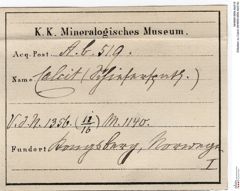 K. K. Mineralogisches Museum.
Acq. Post. A. b. 519.
Name Calcit (Schieferspath.)
V. d. N. 1356. (II/16) M. 1140.
Fundort Kongsberg, Norwegen
I